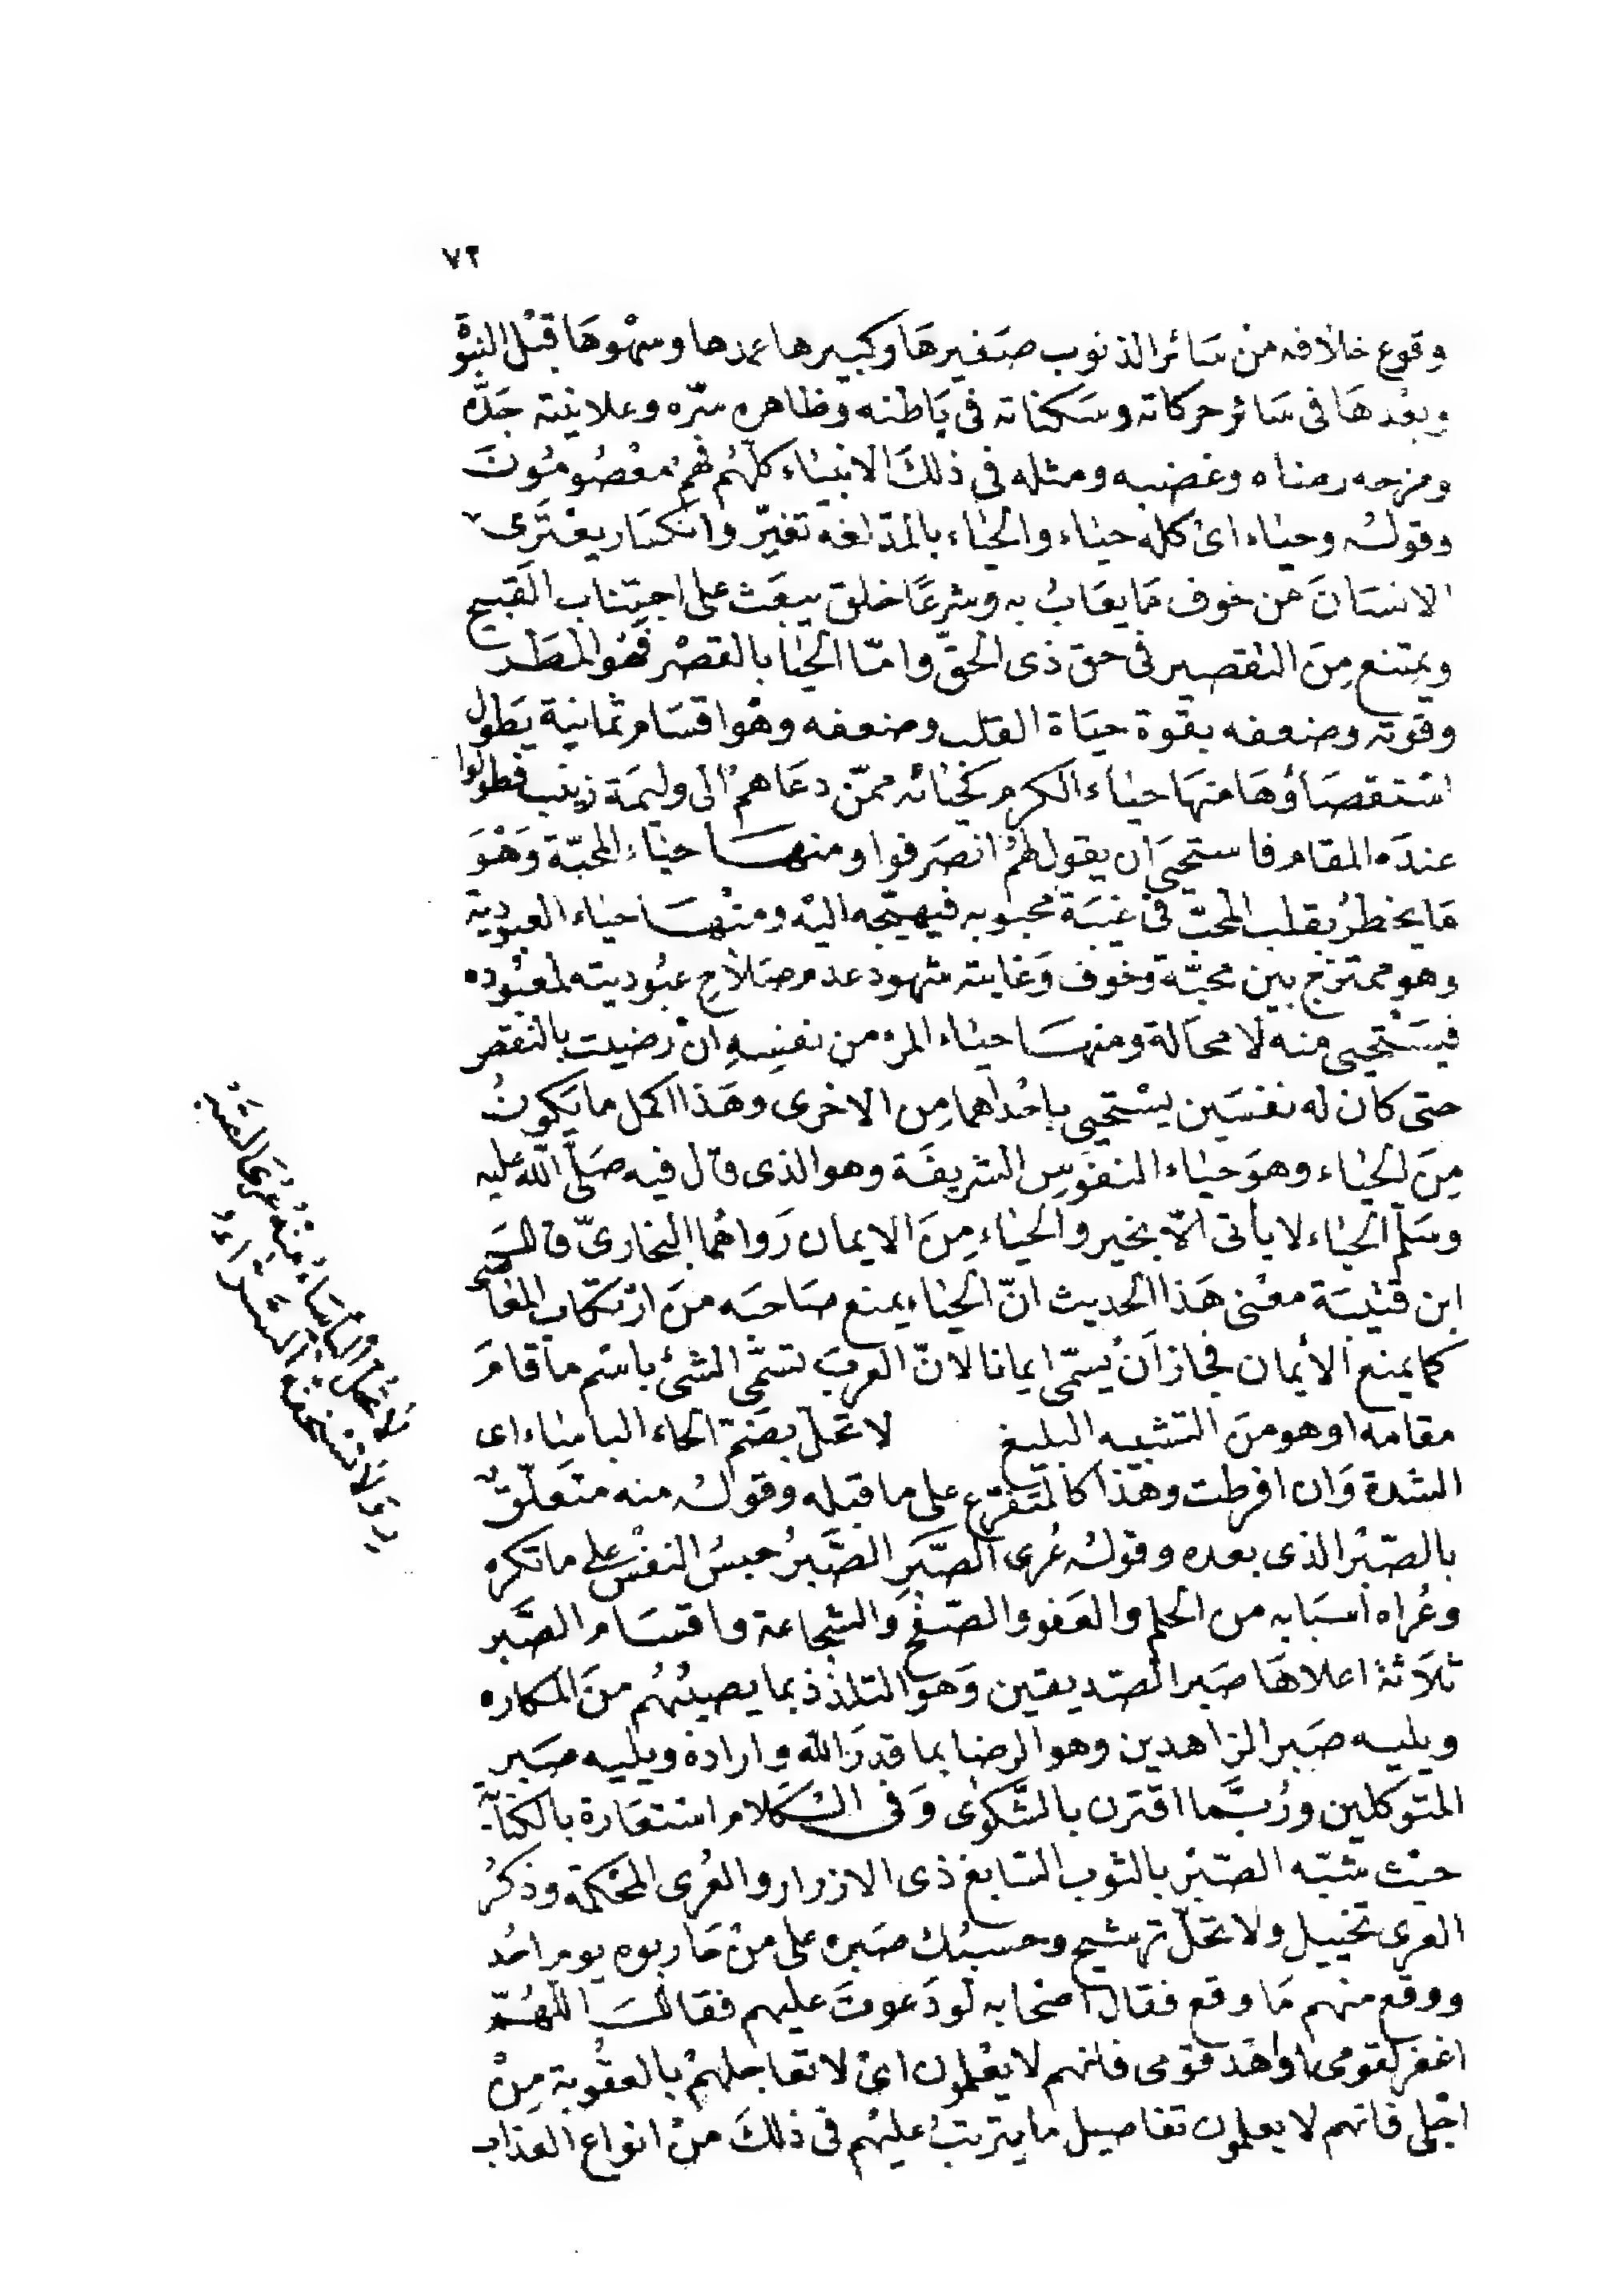 ٧٢
وقوع خلافه منْ سَائر الذنوب صَغيرهَا وكبيرها عمدها وسهْوهَا قبْل النبوَّ
وبعْدهَا فى سَائر حركاته وسَكناته فى بَاطنه وظاهره سرّه وعلانيته جَدّه
ومزحه رضاه وغضبه ومثله فى ذلكَ الانبيَاء كلّهُم فهُم معْصُومُونَ
وقولُه وحيَاء اىْ كله حيَاء والحيَاء بالمدّ لغة تغيّر وانكسَار يعْترَى
الانسَانَ من خوف مَا يعَابُ به وشرعًا خلق يبعَث على اجتنَاب القبيح
ويمتنع مِنَ التقصير فى حق ذى الحقّ وامّا الحيَا بالقصْر فهُو المطَر
وقوّته وضعفه بقوة حيَاة القلب وضعفه وهْو اقسَام ثمانية يَطول
اسْتقصَاؤهَا منهَا حيَاء الكرم كحيَائه ممّن دعَاهمْ الى وليمَة زينب فطولوا
عندَه المقام فاستحيَى اَن يقول لهُمْ انصَرفوا ومنهَا حيَاء المحبّة وَهْوَ
مَا يخطرُ بقلب المحبّ فى غيبَة محبوبه فيهيّجه اليْه ومنْهَا حيَاء العبودية
وهو ممتزج بين محبّة وخوف وَغايته شهود عدم صَلاحِ عبُوديته لمعبُوده
فيسَتْحيى منه لا محَالة ومنهَا حيَاء المرء من نفسِهِ انْ رضيت بالنقص
حتى كان له نفسَين يسْتحيى باحْداهما مِن الاخرى وهَذا اكمل ما يَكونُ
مِنَ الحيَاء وهوَ حيَاء النفوسِ الشريفَة وهو الذى قال فيه صَلَّى اللّه عليه
وسَلّم الحيَاء لا يأتى الّا بخير والحيَاء مِنَ الايمان رَواهُما البخارىّ قال الشيخ
ابن قتيبَة معْنى هَذا الحديث انّ الحيَاء يمنع صَاحبَه منَ ارْتكاب المعَا
كما يمنع الأيمان فجاز اَنْ يُسمّى ايمانا لانّ العربَ تسَمّى الشئ باسْم مَا قامَ
مقامه او هو منَ التشبيه البليغ لا تحُلّ بضمّ الحاء البأساء اى
الشدة وَان افرطت وهَذا كالمتفرّع على ما قبله وقولُه منه متعلّقٌ
بالصّبْر الذى بعده وقولُه عُرى الصّبَرِ الصَّبرُ حبسُ النفسْ على ما تكره
وعُراه اسبَابه من الحلم والعَفو والصّفْح وَالشجاعة واقسَام الصَّبر
ثلَاثة اعلاهَا صَبر الصّديقين وَهو التلذّذ بما يصيبُهُم منَ المكاره
ويليه صَبر الزاهدين وهو الرضا بما قدرَ اللّه واراده ويليه صَبر
المتوكلين ورُبَّما اقترن بالشَّكوَى وَفى الكَلام استعَارة بالكنايَة
حيْث شبّه الصّبْر بالثوب السَّابغ ذى الازرار والعُرى المحْكمَة وذكرُ
العرى تخييل ولا تحُلّ ترشيح وحسبُك صَبره على منْ حَاربوه يوم احُد
ووقع منهم مَا وقع فقال اصْحَابه لو دَعوتَ عليهم فقالَ اللّهُمّ
اغفر لقومى او اهْد قومى فانهم لا يعْلمون اىْ لا تعَاجلهُمْ بالعقُوبة مِنْ
اجْلى فانهم لا يعلمون تفاصيل ما يترتبُ عليْهُم فى ذلكَ منْ انواع العذاب
لَا تحُلُّ البَأسَاءُ مِنْهُ عُرَى الصَّبْرِ
وَلَا تستخفُّهُ السَّرَّاءُ